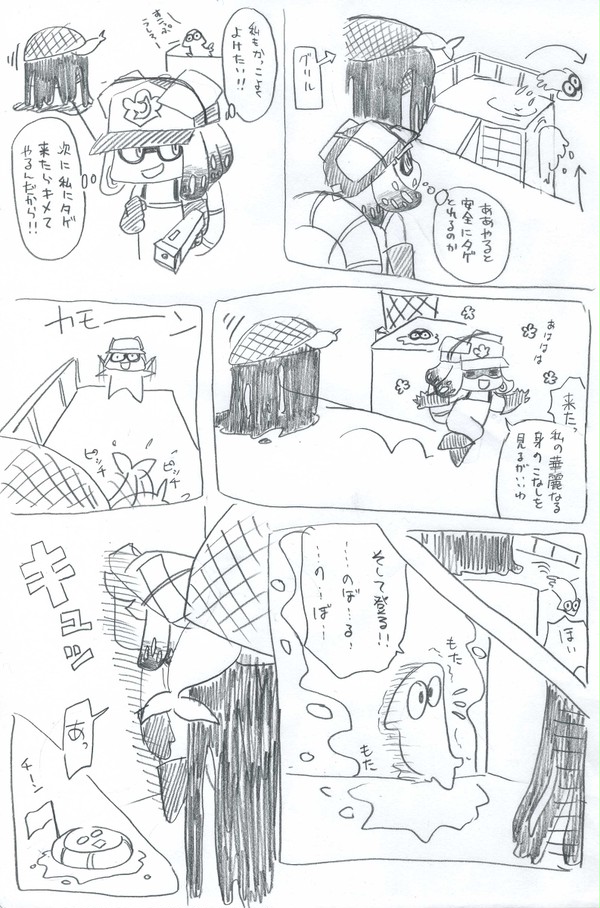 グリル
ああやると
安全にタゲ
とれるのか
すてっぷ
うしろー
私もかっこよく
よけたい!!
次に私にタゲ
来たらキメて
やるんだから!!
あははは
来たっ
私の華麗なる
身のこなしを
見るがいいわ
カモーーン
ピッチ
ピッチ
ほい
そして登る!!
……のぼ…る!
…の…ぼ…
もた〜
もた
キュッ
あっ
チーン